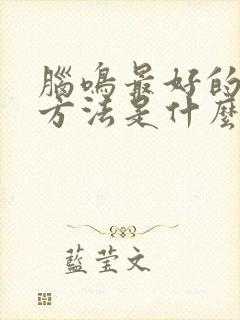 腦鳴最好的
方法是什麼
藍瑩文